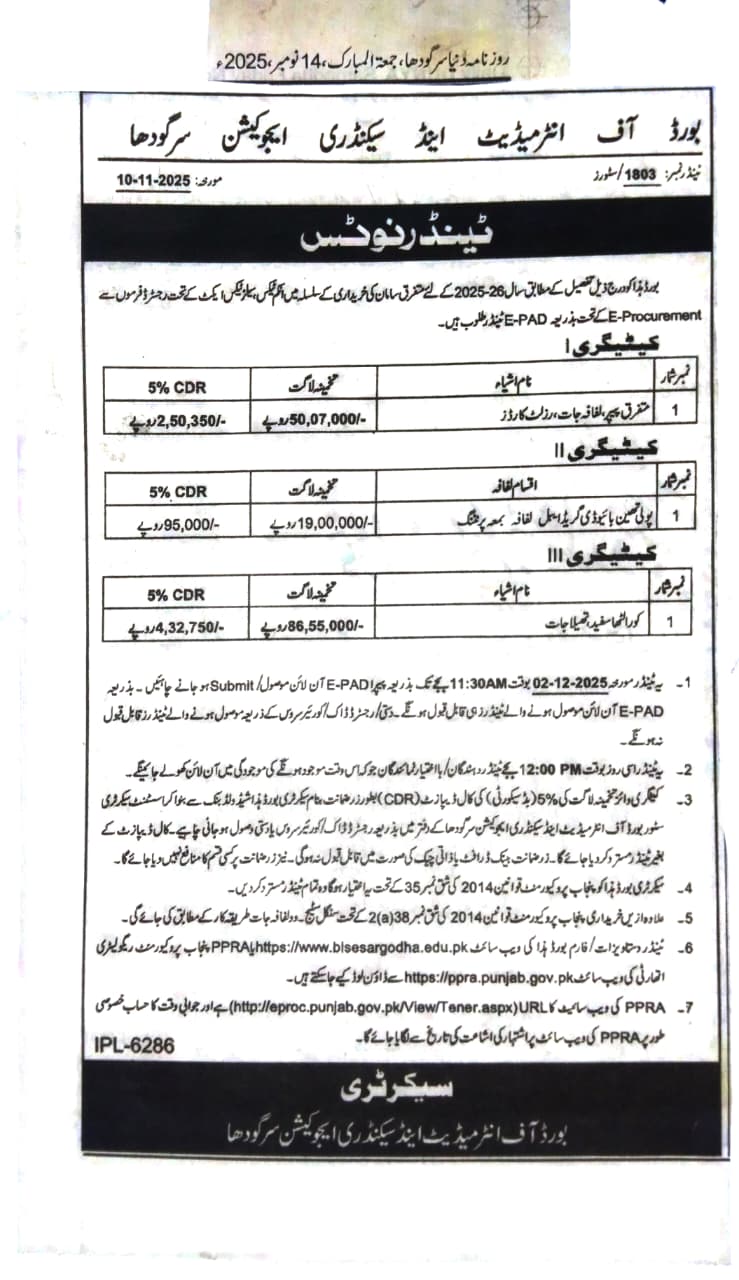 روزنامہ دنیا سرگودھا، جمعۃ المبارک، 14 نومبر، 2025ء
بورڈ آف انٹرمیڈیٹ اینڈ سیکنڈری ایجوکیشن سرگودھا
ٹینڈر نمبر: 1803/سٹورز
مورخہ: 10-11-2025
ٹینڈر نوٹس
بورڈ ہذا کو درج ذیل تفصیل کے مطابق سال 26-2025 کے لئے متفرق سامان کی خریداری کے سلسلہ میں انکم ٹیکس، سیلز ٹیکس ایکٹ کے تحت رجسٹرڈ فرموں سے
E-Procurement کے تحت بذریعہ E-PAD ٹینڈر مطلوب ہیں۔
کیٹیگری I
نمبر شمار نام اشیاء تخمینہ لاگت 5% CDR
1 متفرق پیپر، لفافہ جات، رزلٹ کارڈز 50,07,000/- روپے 2,50,350/- روپے
کیٹیگری II
نمبر شمار اقسام لفافہ تخمینہ لاگت 5% CDR
1 پولی تھین بائیوڈی گریڈ ایبل لفافہ بمعہ پرنٹنگ 19,00,000/- روپے 95,000/- روپے
کیٹیگری III
نمبر شمار نام اشیاء تخمینہ لاگت 5% CDR
1 کورا لٹھا سفید، تھیلا جات 86,55,000/- روپے 4,32,750/- روپے
1۔ یہ ٹینڈر مورخہ 02-12-2025 بوقت 11:30AM بجے تک بذریعہ پیپرا E-PAD آن لائن موصول/Submit ہو جانے چاہئیں۔ بذریعہ
E-PAD آن لائن موصول ہونے والے ٹینڈرز ہی قابل قبول ہونگے۔ دستی/رجسٹرڈ ڈاک/کورئیر سروس کے ذریعہ موصول ہونے والے ٹینڈرز قابل قبول
نہ ہونگے۔
2۔ یہ ٹینڈر اسی روز بوقت 12:00 PM بجے ٹینڈر دہندگان/بااختیار نمائندگان جو کہ اس وقت موجود ہونگے کی موجودگی میں آن لائن کھولے جائینگے۔
3۔ کیٹگری وائز تخمینہ لاگت کی 5% (بڈ سیکورٹی) کی کال ڈیپازٹ (CDR) بطور زرضمانت بنام سیکرٹری بورڈ ہذا شیڈولڈ بنک سے بنوا کر اسسٹنٹ سیکرٹری
سٹور بورڈ آف انٹرمیڈیٹ اینڈ سیکنڈری ایجوکیشن سرگودھا کے دفتر میں بذریعہ رجسٹرڈ ڈاک/کورئیر سروس یا دستی وصول ہو جانی چاہیے۔ کال ڈیپازٹ کے
بغیر ٹینڈر مسترد کر دیا جائے گا۔ زرضمانت بینک ڈرافٹ یا ذاتی چیک کی صورت میں قابل قبول نہ ہوگی۔ نیز زرضمانت پر کسی قسم کا منافع نہیں دیا جائے گا۔
4۔ سیکرٹری بورڈ ہذا کو پنجاب پروکیورمنٹ قوانین 2014 کی شق نمبر 35 کے تحت یہ اختیار ہوگا وہ تمام ٹینڈر مسترد کر دیں۔
5۔ علاوہ ازیں خریداری پنجاب پروکیورمنٹ قوانین 2014 کی شق نمبر 38(a)2 کے تحت سنگل سٹیج۔ دو لفافہ جات طریقہ کار کے مطابق کی جائے گی۔
6۔ ٹینڈر دستاویزات/فارم بورڈ ہذا کی ویب سائٹ https://www.bisesargodha.edu.pk یا PPRA پنجاب پروکیورمنٹ ریگولیٹری
اتھارٹی کی ویب سائٹ https://ppra.punjab.gov.pk سے ڈاؤن لوڈ کیے جا سکتے ہیں۔
7۔ PPRA کی ویب سائیٹ کا URL (http://eproc.punjab.gov.pk/View/Tener.aspx) ہے اور جوابی وقت کا حساب خصوصی
طور پر PPRA کی ویب سائٹ پر اشتہار کی اشاعت کی تاریخ سے لگایا جائے گا۔
IPL-6286
سیکرٹری
بورڈ آف انٹرمیڈیٹ اینڈ سیکنڈری ایجوکیشن سرگودھا